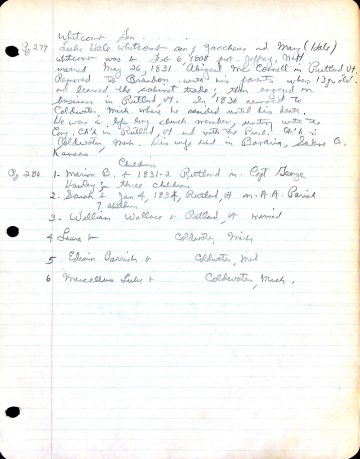 Whitcomb Gen. . . . . .
Pg 279 Luke Hale Whitcomb son of Zaccheus and Mary (Hale)
Whitcomb was b Feb 6, 1808 Jaffrey, N.H
married May 26, 1831 Abigail Mc Connell in Rutland Vt.
Removed to Brandon with his parents when 13 yrs old.
and learned the cabinet trade; then engaged in
business in Rutland Vt. In 1836 removed to
Coldwater, Mich where he resided until his death.
He was a life long church member, uniting with the
Cong. Ch. in Rutland, Vt and with the Presb. Ch. in
Coldwater, Mich. His wife died in Saline Co.
Kansas.
Children
Pg 280 1- Marion B. b 1831-2 Rutland m. Capt George
three children
2- Sarah b Jan 4, 1834, Rutland, Vt m. A.A. Parish
? children
3- William Wallace b Rutland, Vt married
4 Laura b Coldwater, Mich
5 Edwin Parrish b Coldwater, Mich
6 Marcellus Luke b Coldwater, Mich.